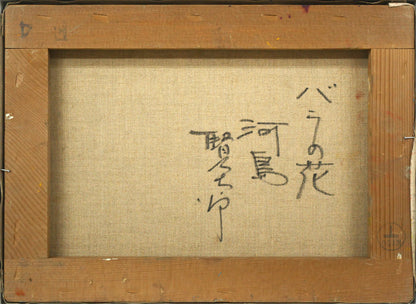 バラの花
河島
賢太郎